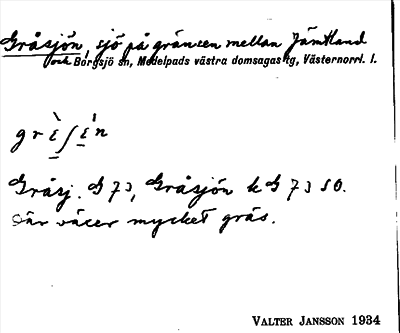 Gråsjön, sjö på gränsen mellan Jämtland
och Borgsjö sn, Medelpads västra domsagas tg, Västernorrl. l.
Gråsj. G 73, Gråsjön k G 73 SO.
Där växer mycket gräs.
VALTER JANSSON 1934